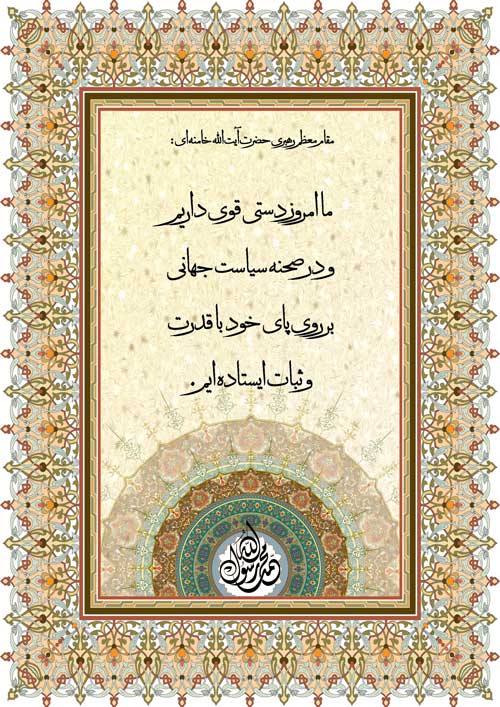 مقام معظم رهبری حضرت آیت‌الله خامنه‌ای:
ما امروز دستی قوی داریم
و در صحنه سیاست جهانی
بر روی پای خود با قدرت
و ثبات ایستاده‌ایم.
محمد رسول الله